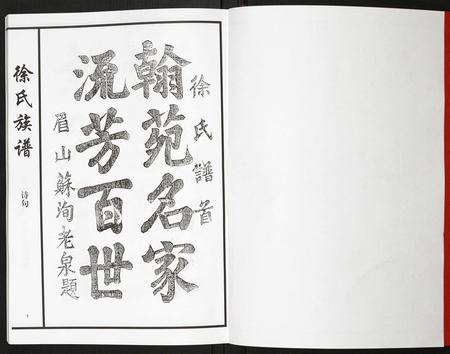 徐氏譜首
翰苑名家
流芳百世
眉山蘇洵老泉題
徐氏族谱
诗句
1